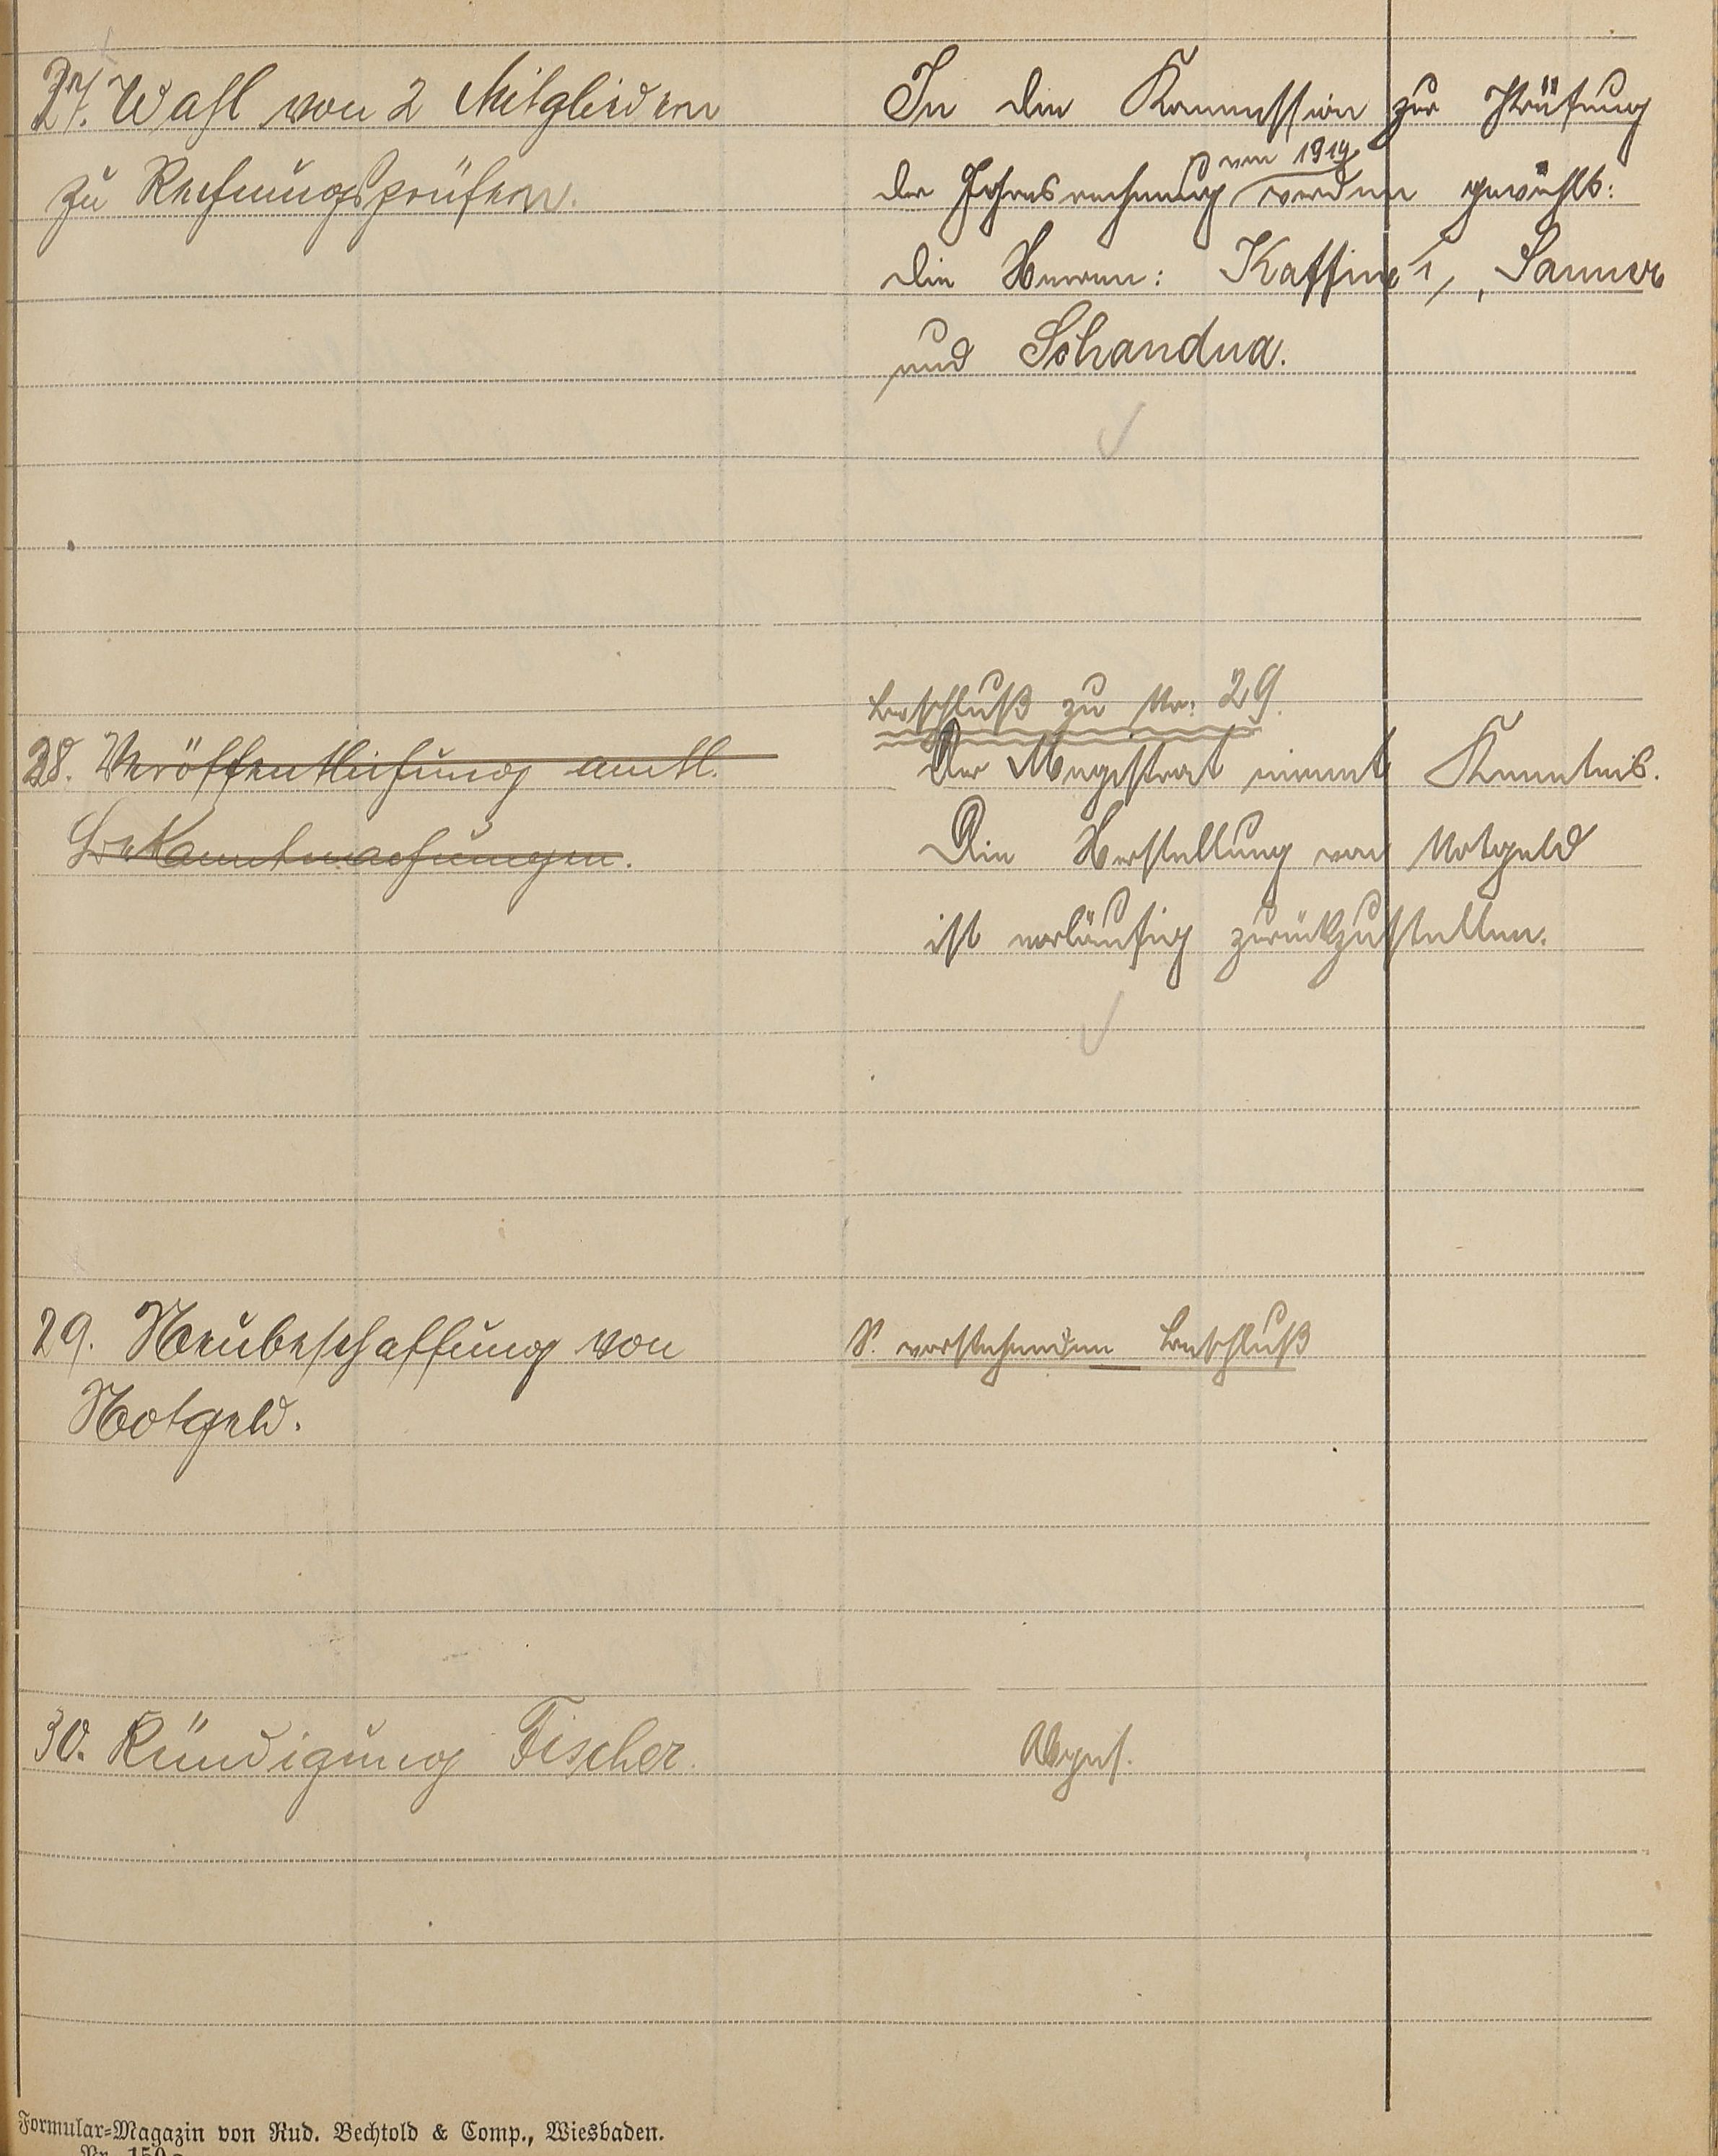 27. Wahl von 2 Mitgliedern
zu Rechnungsprüfern.
In die Kommission zur Prüfung
der Jahresrechnung von 1919 werden gewählt:
die Herren: Sauner
und Schandua.
Beschluß zu Nr: 29.
28. Veröffentlichung amtl.
Bekanntmachungen.
Der Magistrat nimmt Kenntnis.
Die Herstellung von Notgeld
ist vorläufig zurückzustellen.
29. Neubeschaffung von
Notgeld.
S. vorstehenden Beschluß
30. Kündigung Fischer.
Abges.
Formular-Magazin von Rud. Bechtold & Comp., Wiesbaden.
Nr. 150